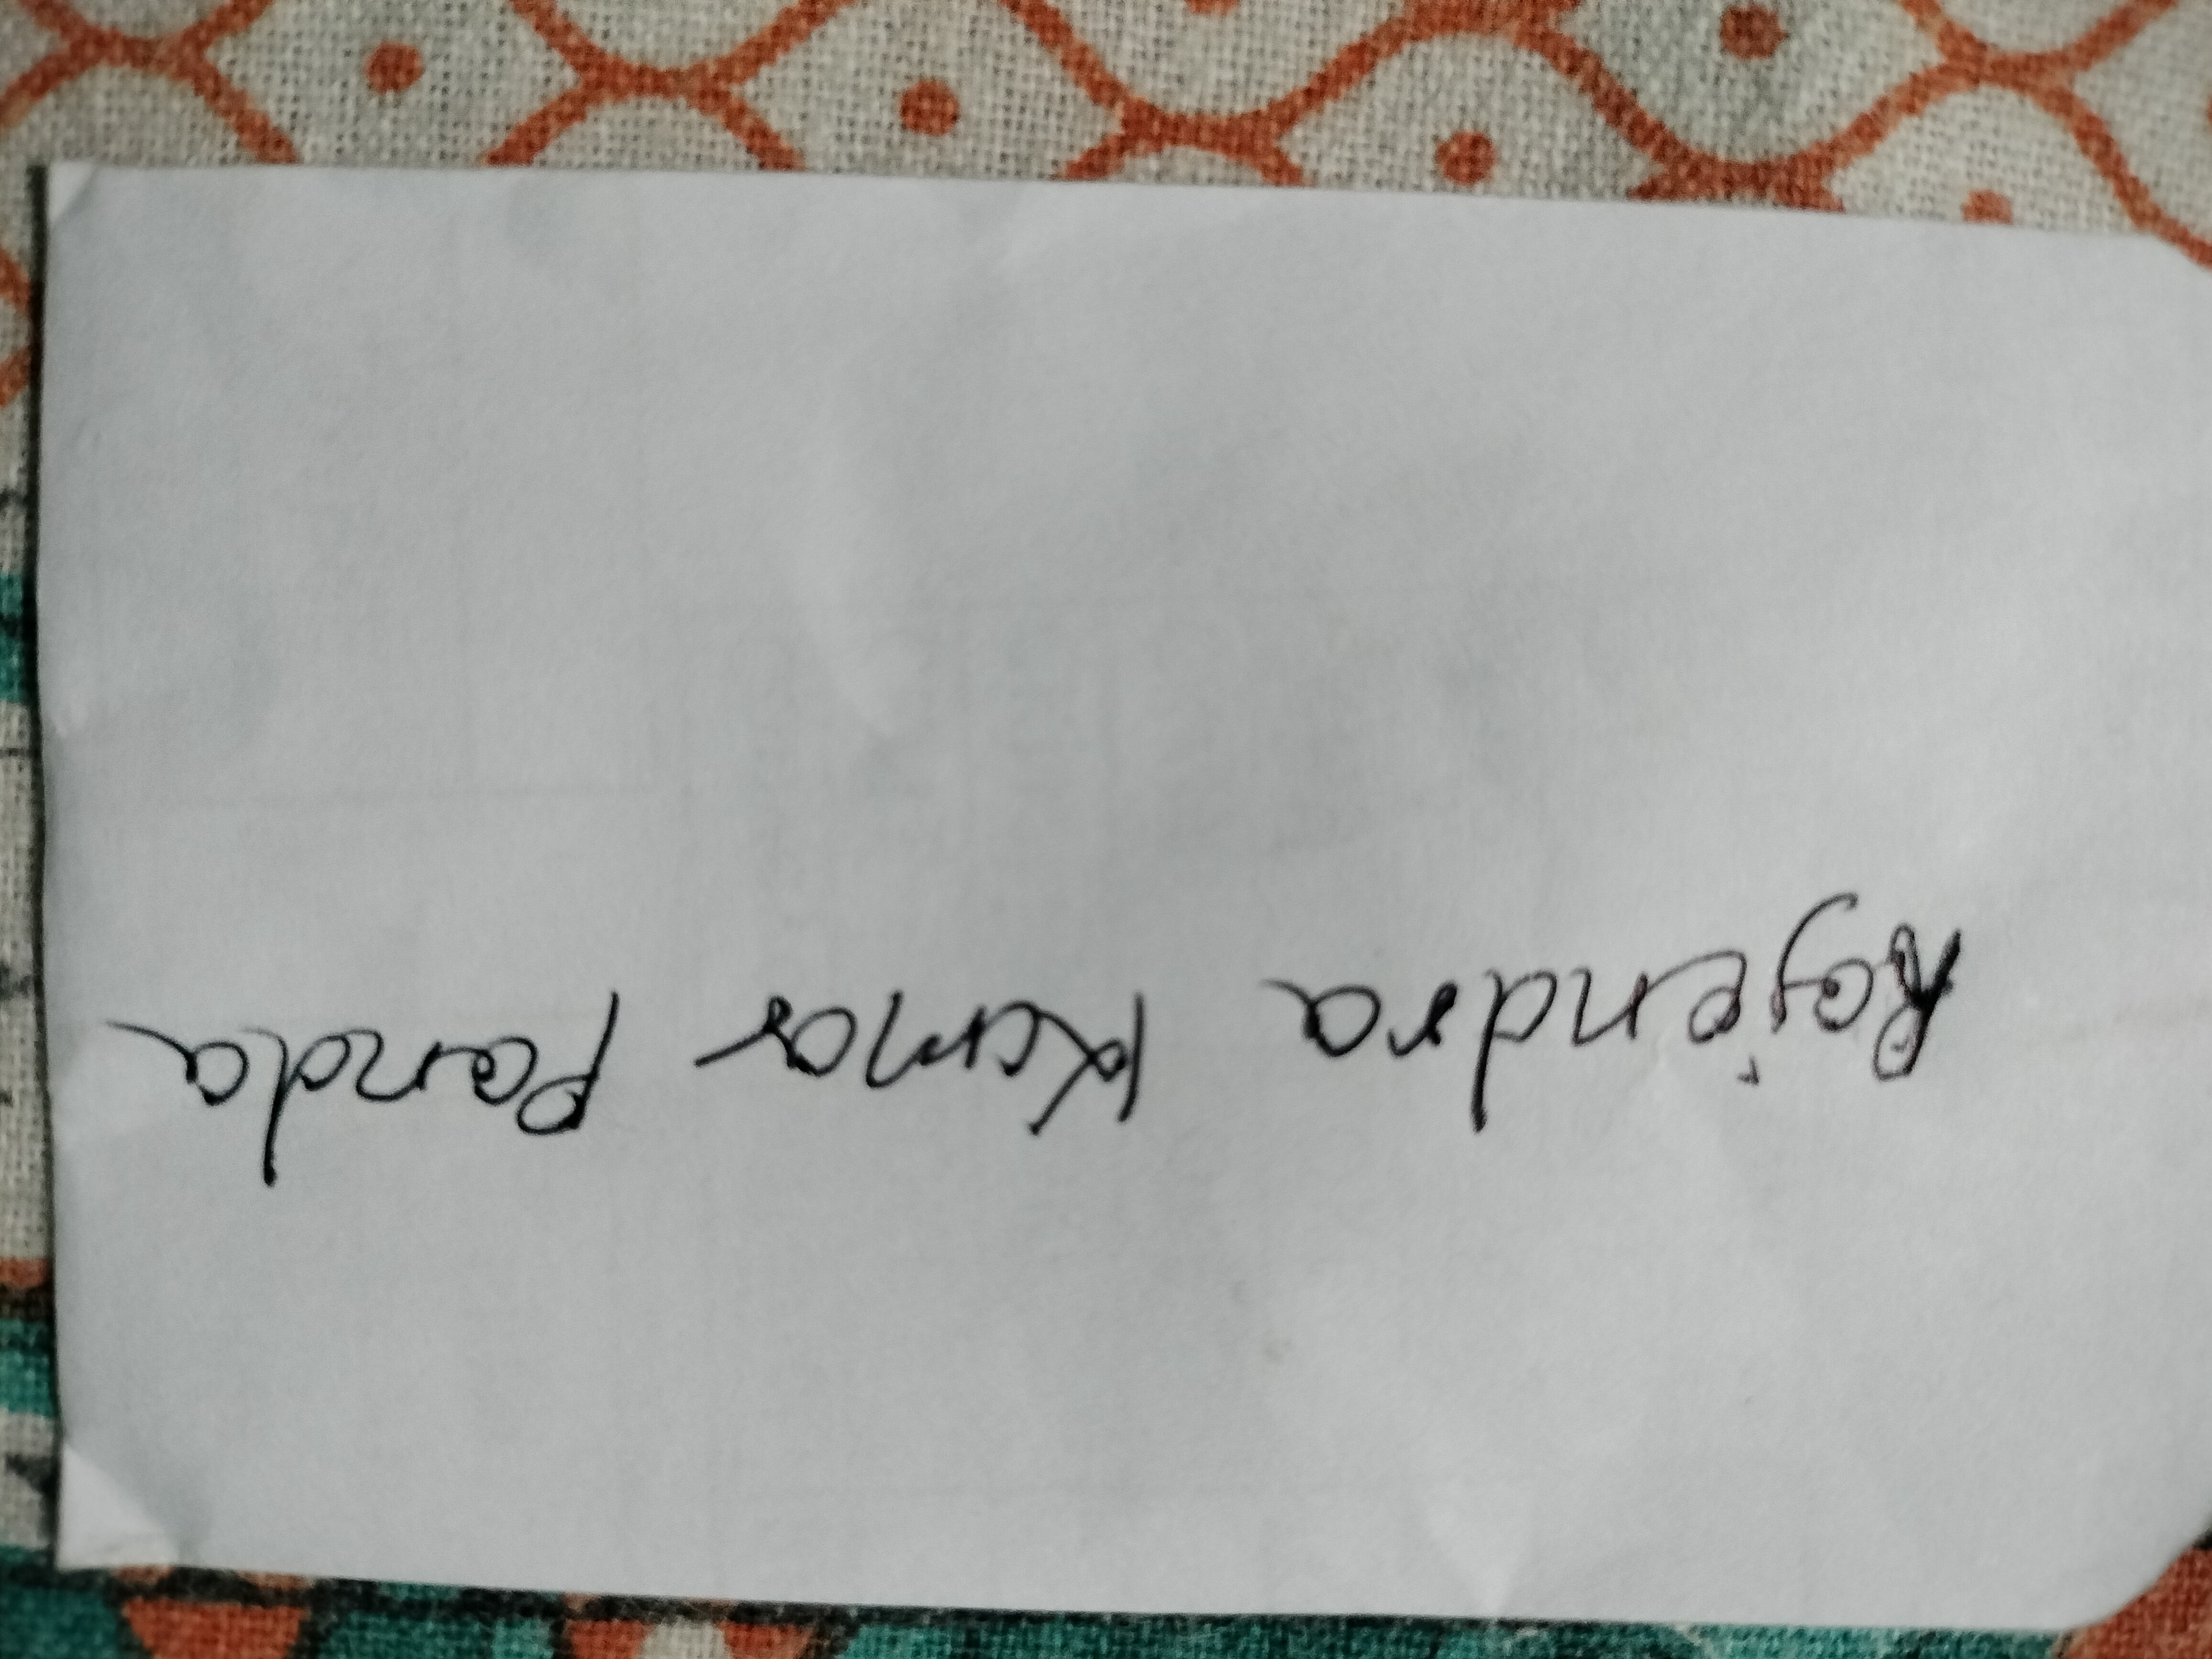 Rajendra Kumar Panda